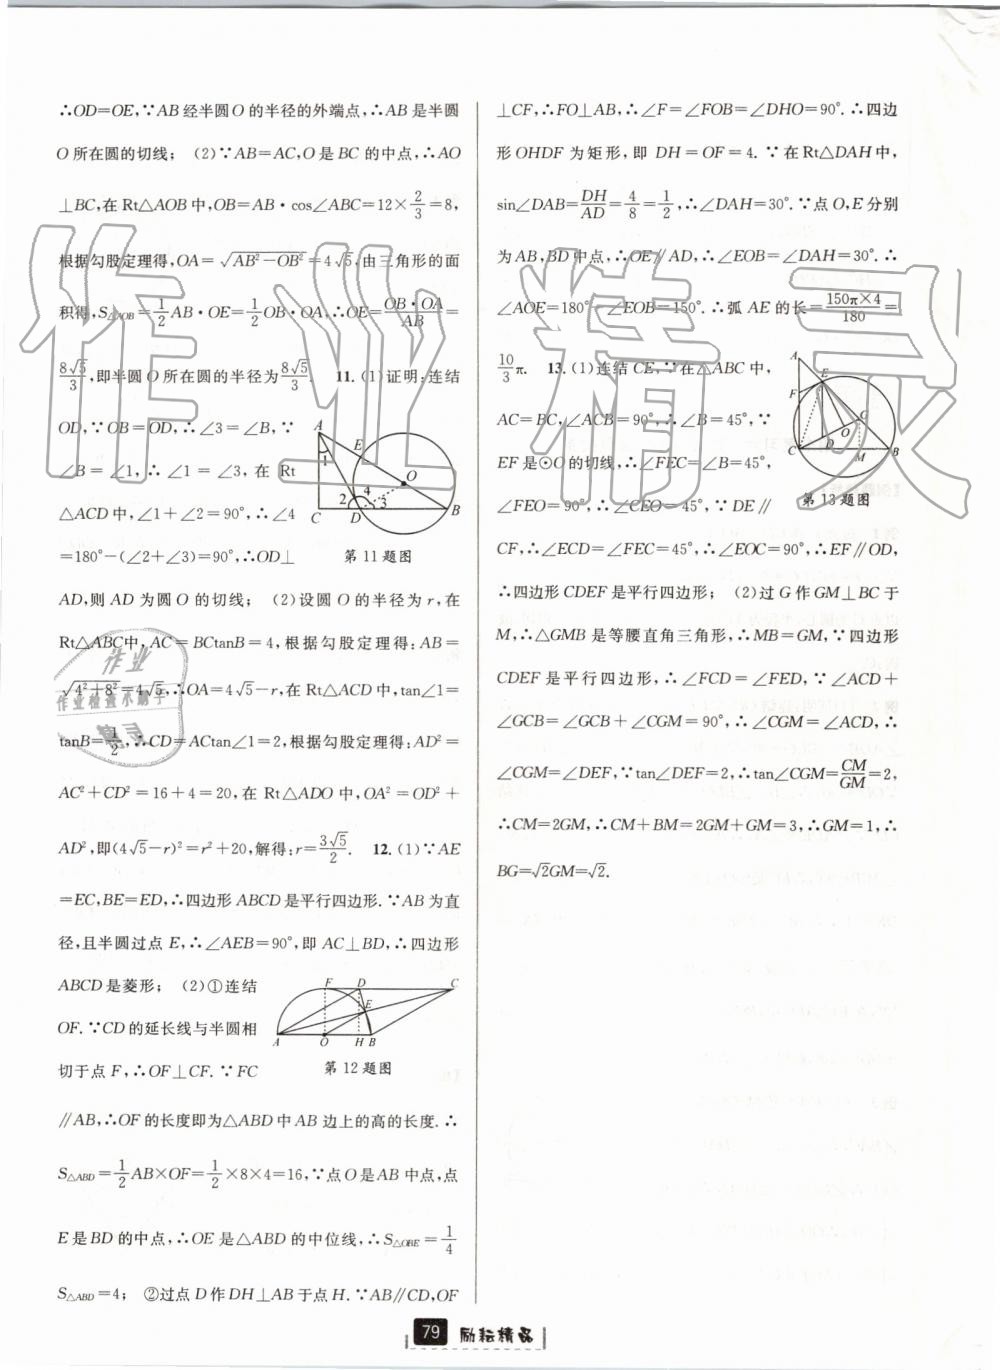 ∴OD=OE,∵AB经半圆O的半径的外端点,∴AB是半圆
O所在圆的切线; (2)∵AB=AC,O是BC的中点,∴AO
⊥BC,在Rt△AOB中,OB=AB·cos∠ABC=12×2/3=8,
根据勾股定理得,OA=√(AB²-OB²)=4√5,由三角形的面
积得,S△AOB=1/2AB·OE=1/2OB·OA,∴OE=OB·OA/AB=
8√5/3,即半圆O所在圆的半径为8√5/3. 11.(1)证明:连结
OD,∵OB=OD,∴∠3=∠B,∵
∠B=∠1,∴∠1=∠3,在Rt
△ACD中,∠1+∠2=90°,∴∠4
=180°-(∠2+∠3)=90°,∴OD⊥
A
1
E
O
2
4
3
C
D
B
第11题图
AD,则AD为圆O的切线; (2)设圆O的半径为r,在
Rt△ABC中,AC=BCtanB=4,根据勾股定理得:AB=
√(4²+8²)=4√5,∴OA=4√5-r,在Rt△ACD中,tan∠1=
tanB=1/2,∴CD=ACtan∠1=2,根据勾股定理得:AD²=
AC²+CD²=16+4=20,在Rt△ADO中,OA²=OD²+
AD²,即(4√5-r)²=r²+20,解得:r=3√5/2. 12.(1)∵AE
=EC,BE=ED,∴四边形ABCD是平行四边形.∵AB为直
径,且半圆过点E,∴∠AEB=90°,即AC⊥BD,∴四边形
ABCD是菱形; (2)①连结
OF.∵CD的延长线与半圆相
切于点F,∴OF⊥CF.∵FC
F
D
C
E
A
O
H
B
第12题图
∥AB,∴OF的长度即为△ABD中AB边上的高的长度.∴
S△ABD=1/2AB×OF=1/2×8×4=16,∵点O是AB中点,点
E是BD的中点,∴OE是△ABD的中位线,∴S△OBE=1/4
S△ABD=4; ②过点D作DH⊥AB于点H.∵AB∥CD,OF
⊥CF,∴FO⊥AB,∴∠F=∠FOB=∠DHO=90°.∴四边
形OHDF为矩形,即DH=OF=4.∵在Rt△DAH中,
sin∠DAB=DH/AD=4/8=1/2,∴∠DAH=30°.∵点O,E分别
为AB,BD中点,∴OE∥AD,∴∠EOB=∠DAH=30°.∴
∠AOE=180°-∠EOB=150°.∴弧AE的长=150π×4/180=
10/3π. 13.(1)连结CE,∵在△ABC中,
AC=BC,∠ACB=90°,∴∠B=45°,∵
EF是⊙O的切线,∴∠FEC=∠B=45°,
∠FEO=90°,∴∠CEO=45°,∵DE∥
A
E
F
G
O
D
C
M
B
第13题图
CF,∴∠ECD=∠FEC=45°,∴∠EOC=90°,∴EF∥OD,
∴四边形CDEF是平行四边形; (2)过G作GM⊥BC于
M,∴△GMB是等腰直角三角形,∴MB=GM,∵四边形
CDEF是平行四边形,∴∠FCD=∠FED,∵∠ACD+
∠GCB=∠GCB+∠CGM=90°,∴∠CGM=∠ACD,∴
∠CGM=∠DEF,∵tan∠DEF=2,∴tan∠CGM=CM/GM=2,
∴CM=2GM,∴CM+BM=2GM+GM=3,∴GM=1,∴
BG=√2GM=√2.
作业精灵
作业
作业检查小助手
精灵
79 励耘精品